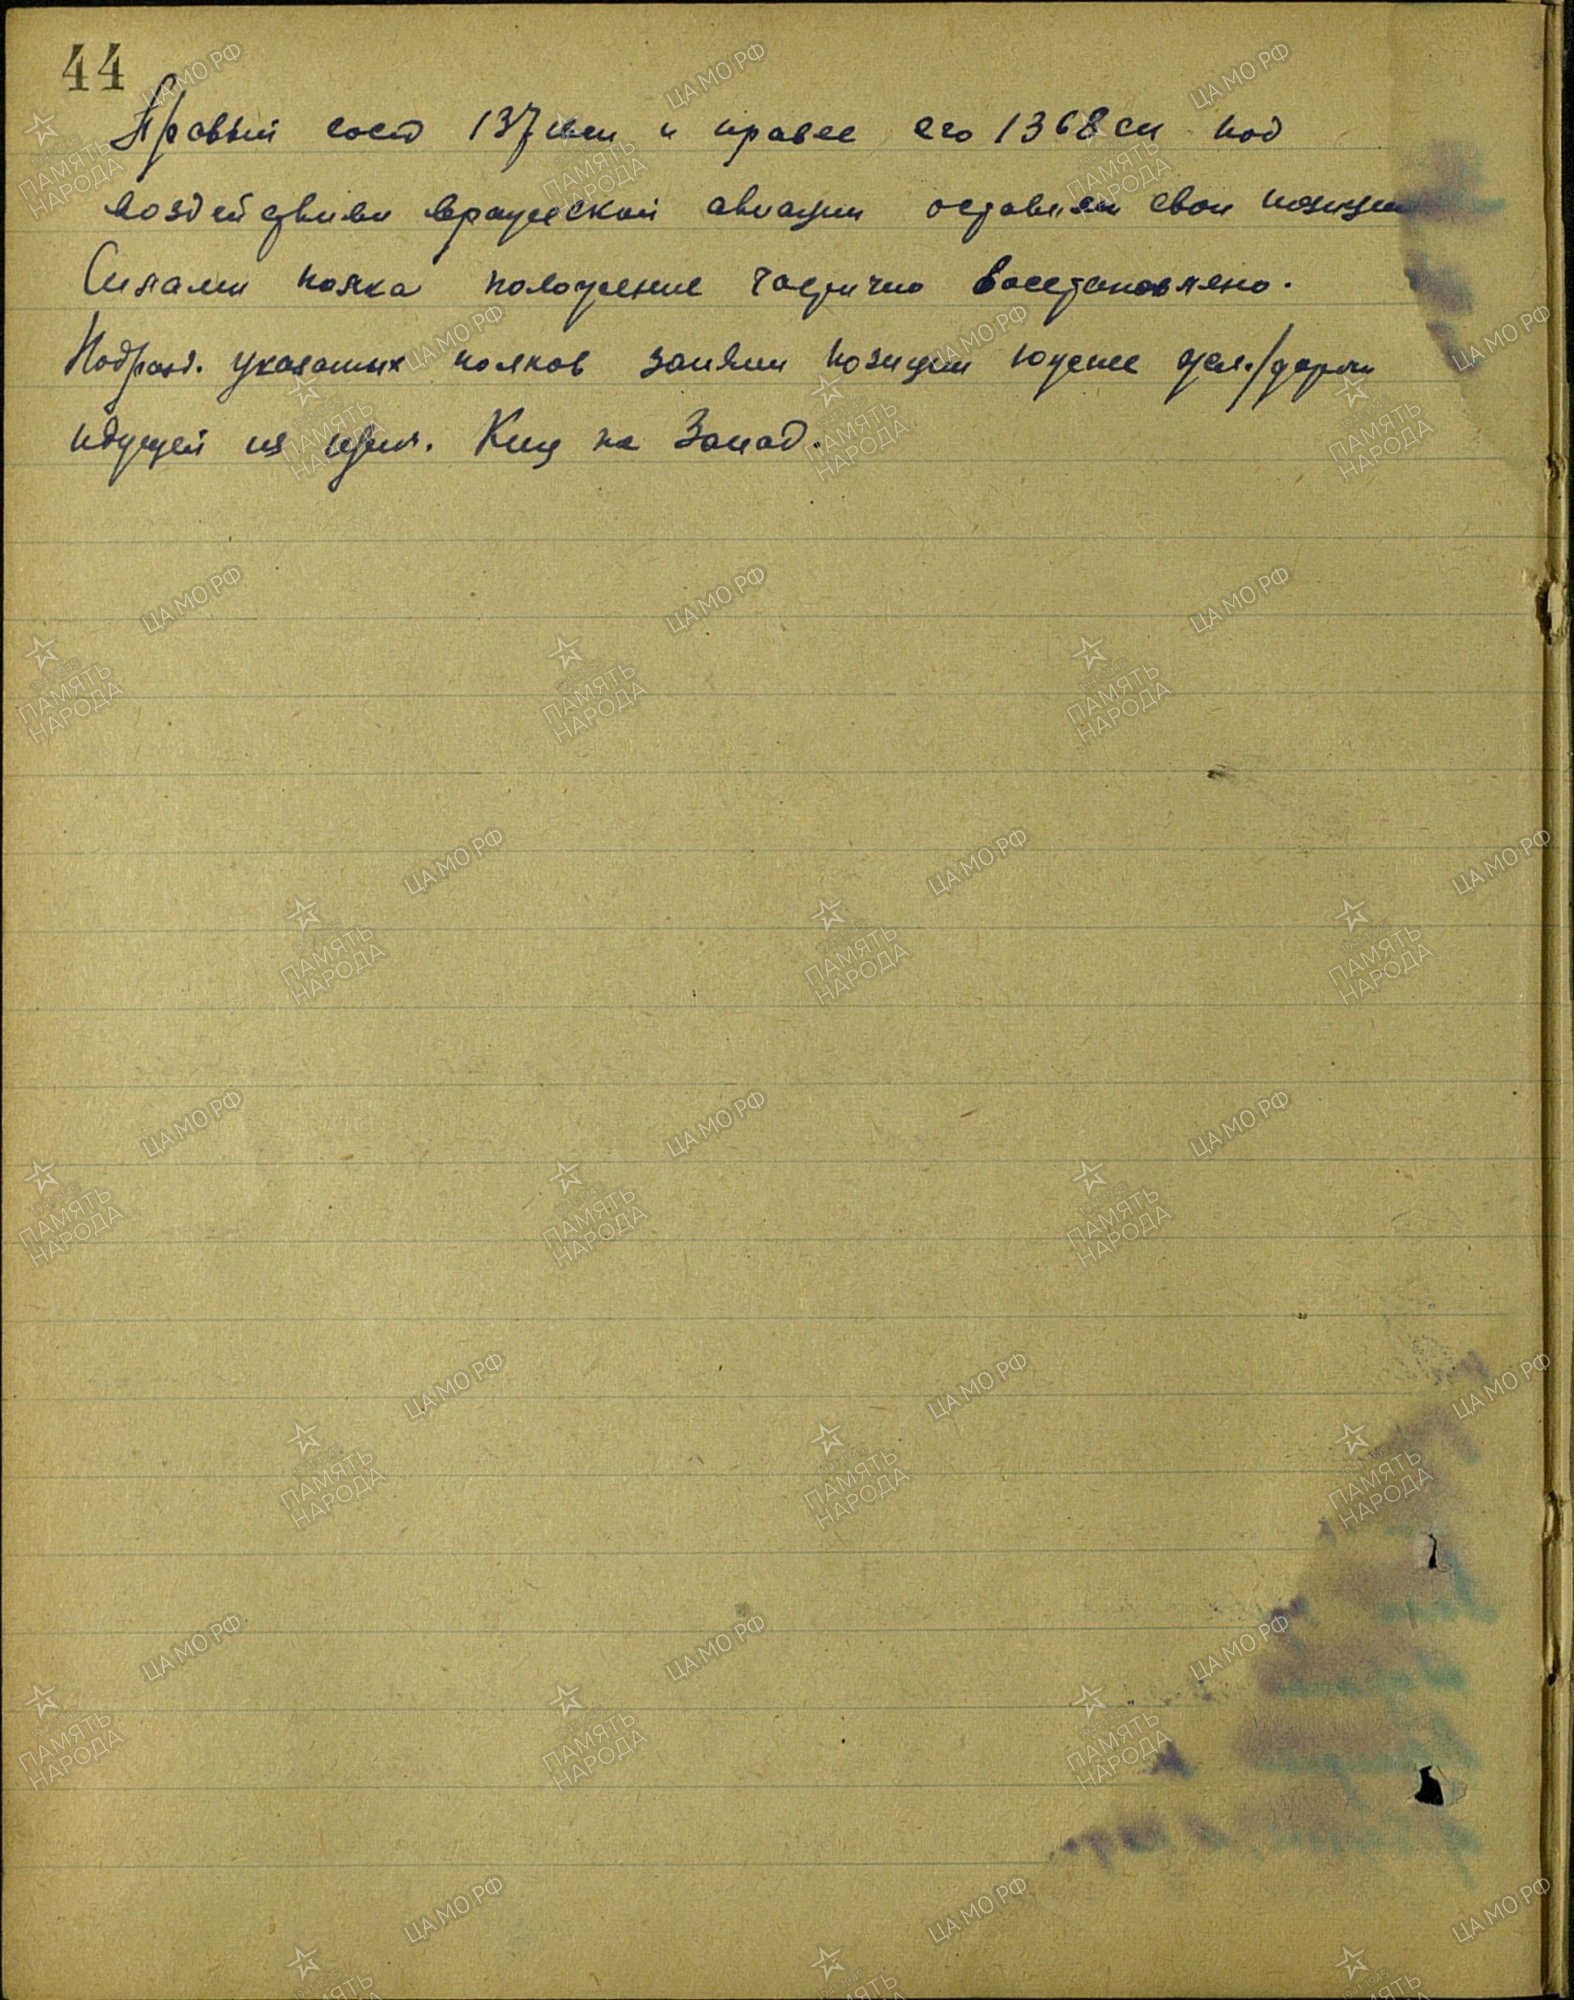 44
Правый сосед 137 и правее его 1368 сп под
воздействием вражеской авиации оставили свои позиции
Силами полка положение частично восстановлено.
Подразд. указаных полков заняли позиции южнее жел./дороги
идущей из Киц на Запад.